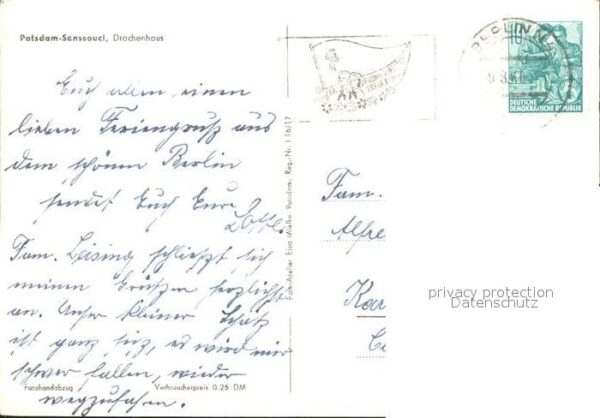 Potsdam-Sanssouci, Drachenhaus
Euch allen einen
lieben Feriengruß aus
dem schönen Berlin
sendet Euch Eure
Lotte.
Fam. Geising schließt sich
meinen Grüßen herzlichst
an. Unser kleiner Schatz
ist ganz süß, es wird mir
schwer fallen, wieder
wegzufahren.
Fotohandabzug Verbraucherpreis 0.25 DM
Foto-Atelier Eino Mielke Potsdam, Reg.-Nr. I 16/57
BERLIN N4
10
DEUTSCHE
DEMOKRATISCHE REPUBLIK
Fam.
Alfre
Kar
privacy protection
Datenschutz